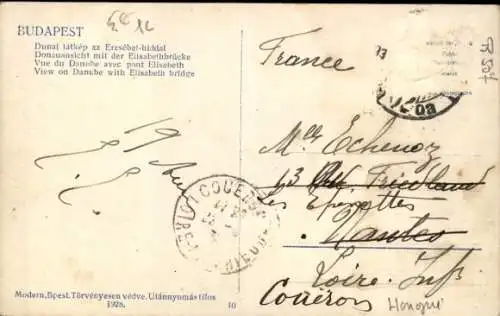 BUDAPEST
Dunai látkép az Erzsébet-híddal
Donauansicht mit der Elisabethbrücke
Vue du Danube avec pont Elisabeth
View on Danube with Elisabeth bridge
France
Mlle Echenoz
13 Friedland
Les Epinettes
Nantes
Loire Inf
Couëron
Hongrie
19
COUËRON
Modern, Bpest. Törvényesen védve. Utánnyomás tilos
1928.
10